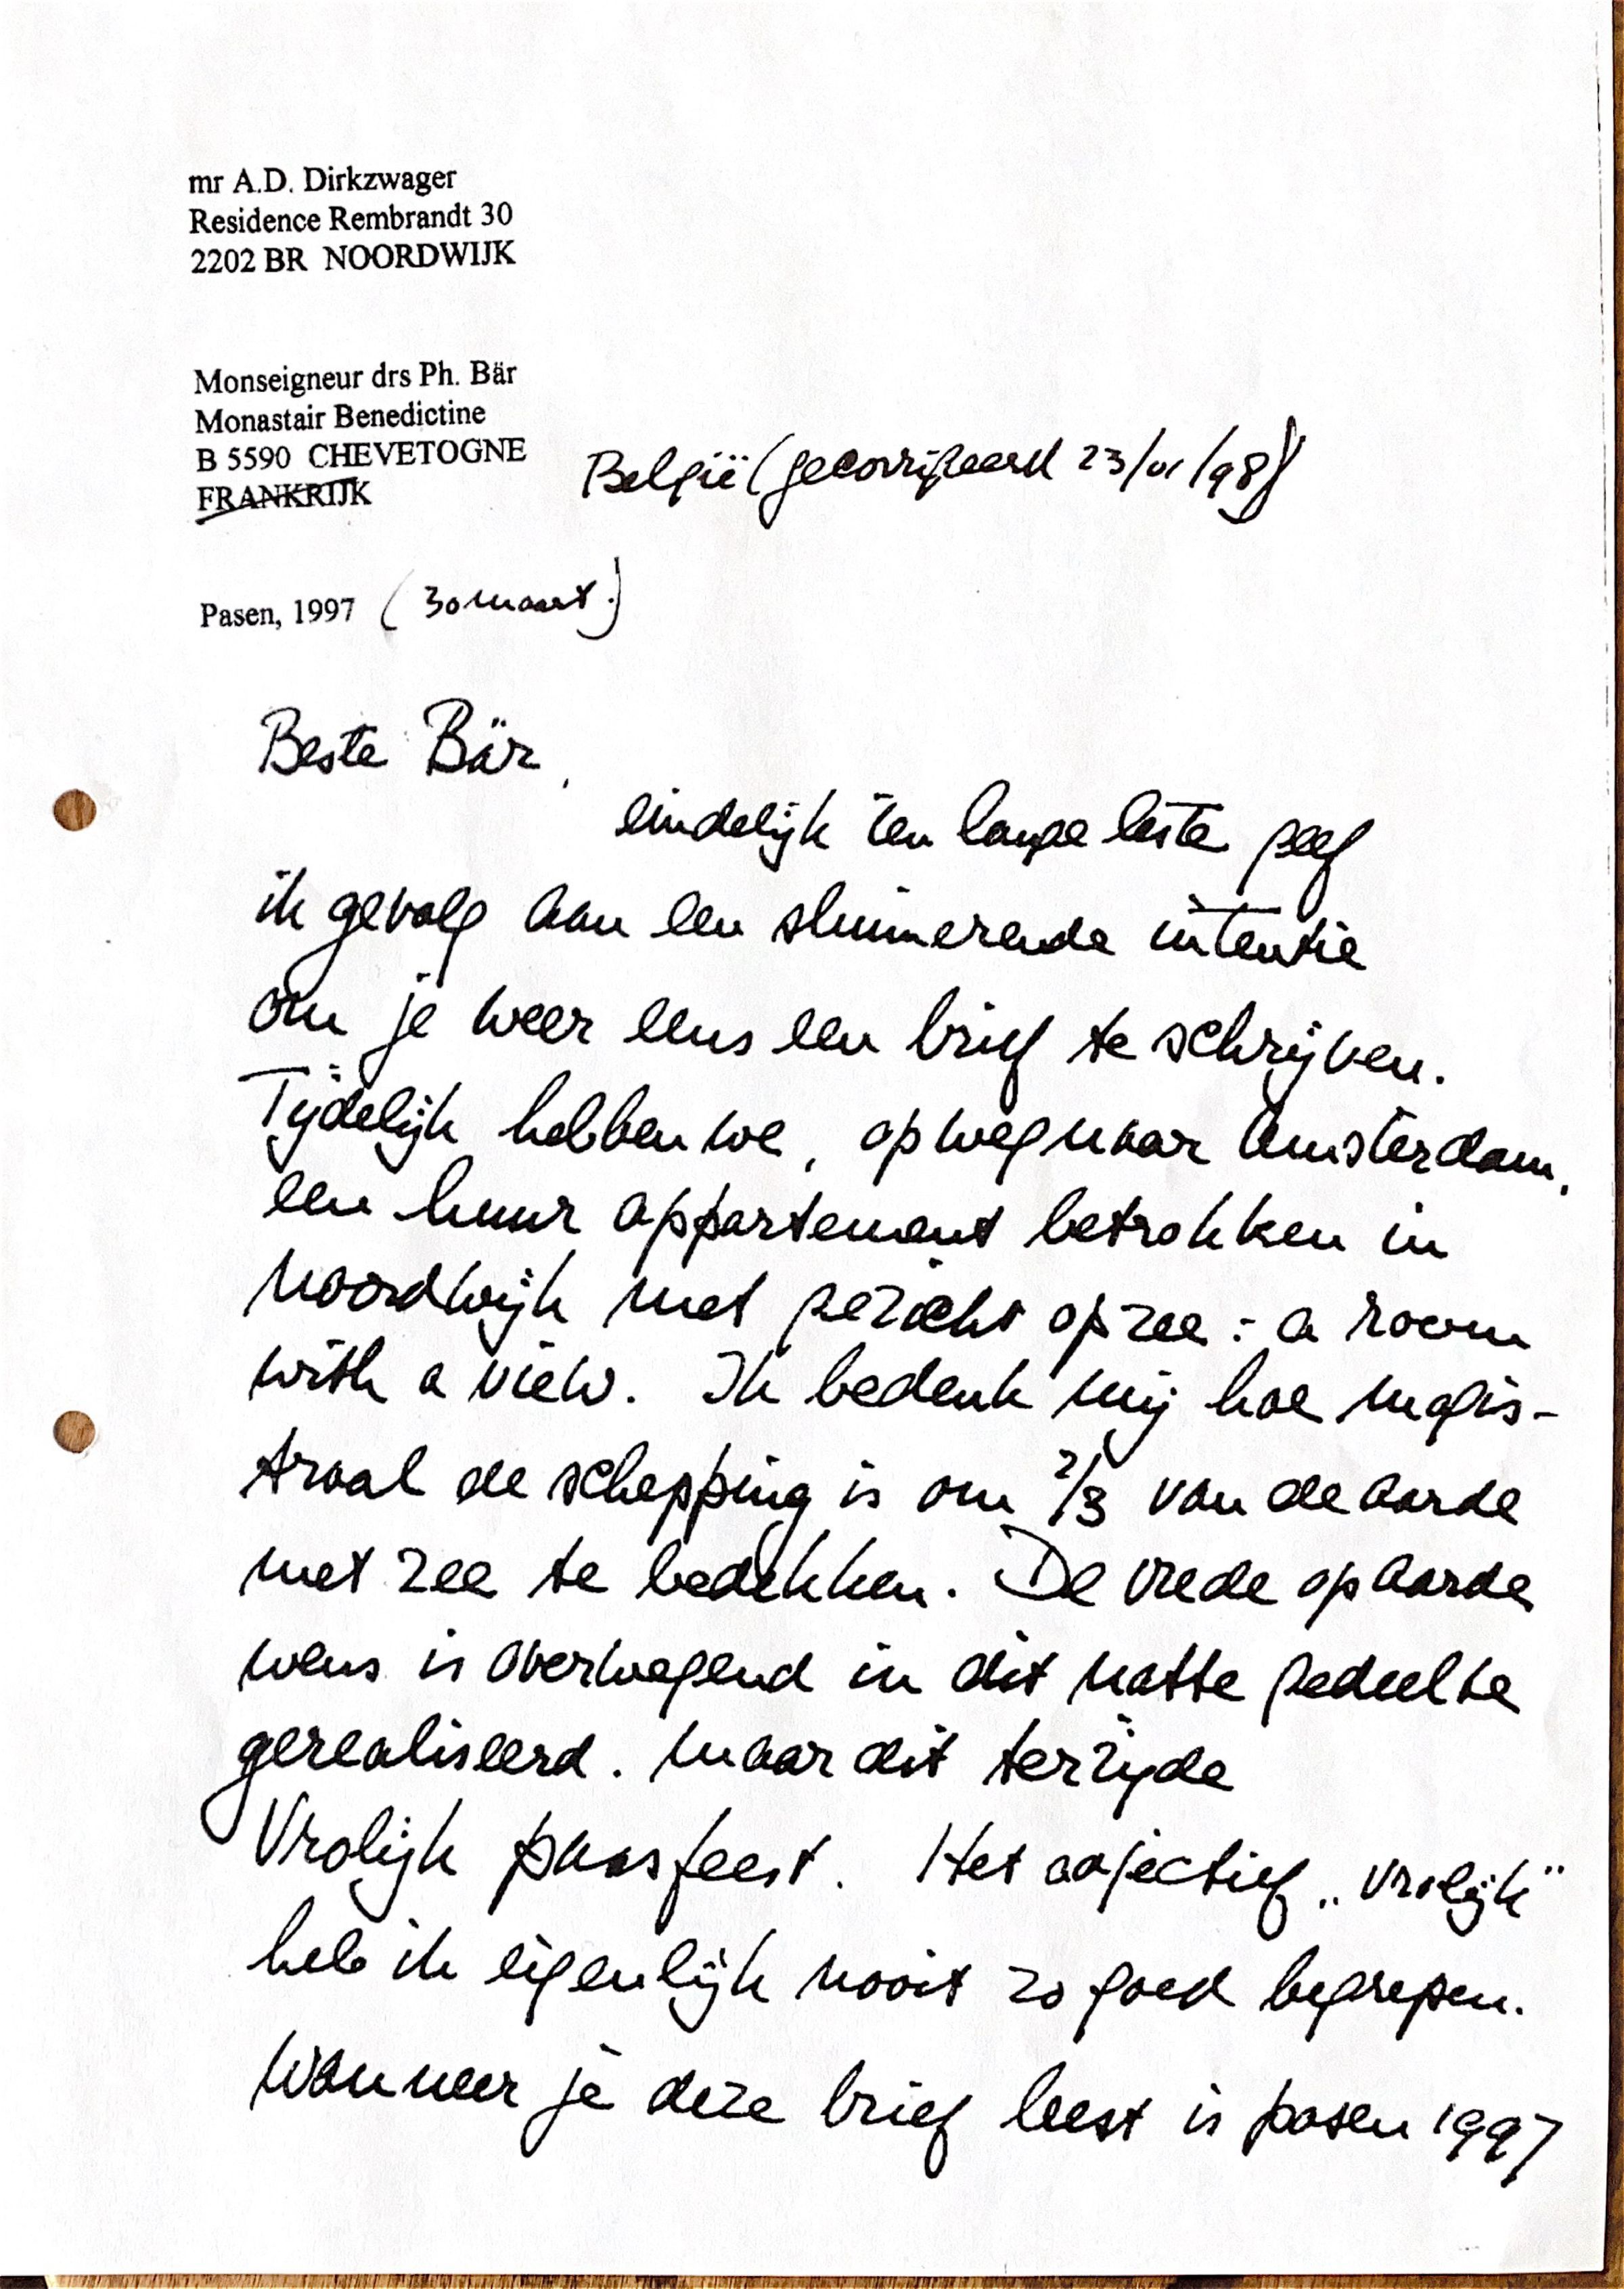 mr A.D. Dirkzwager
Residence Rembrandt 30
2202 BR NOORDWIJK
Monseigneur drs Ph. Bär
Monastair Benedictine
B 5590 CHEVETOGNE
FRANKRIJK België (gecorrigeerd 23/01/98)
Pasen, 1997 (30 maart.)
Beste Bär,
eindelijk ten lange leste geef
ik gevolg aan een sluimerende intentie
om je weer eens een brief te schrijven.
Tijdelijk hebben we, op weg naar Amsterdam,
een huur appartement betrokken in
Noordwijk met gezicht op zee: a room
with a view. Ik bedenk mij hoe magis-
traal de schepping is om 2/3 van de aarde
met zee te bedekken. De vrede op aarde
wens is overwegend in dit natte gedeelte
gerealiseerd. Maar dit terzijde
Vrolijk paasfeest. Het adjectief „vrolijk"
heb ik eigenlijk nooit zo goed begrepen.
Wanneer je deze brief leest is pasen 1997